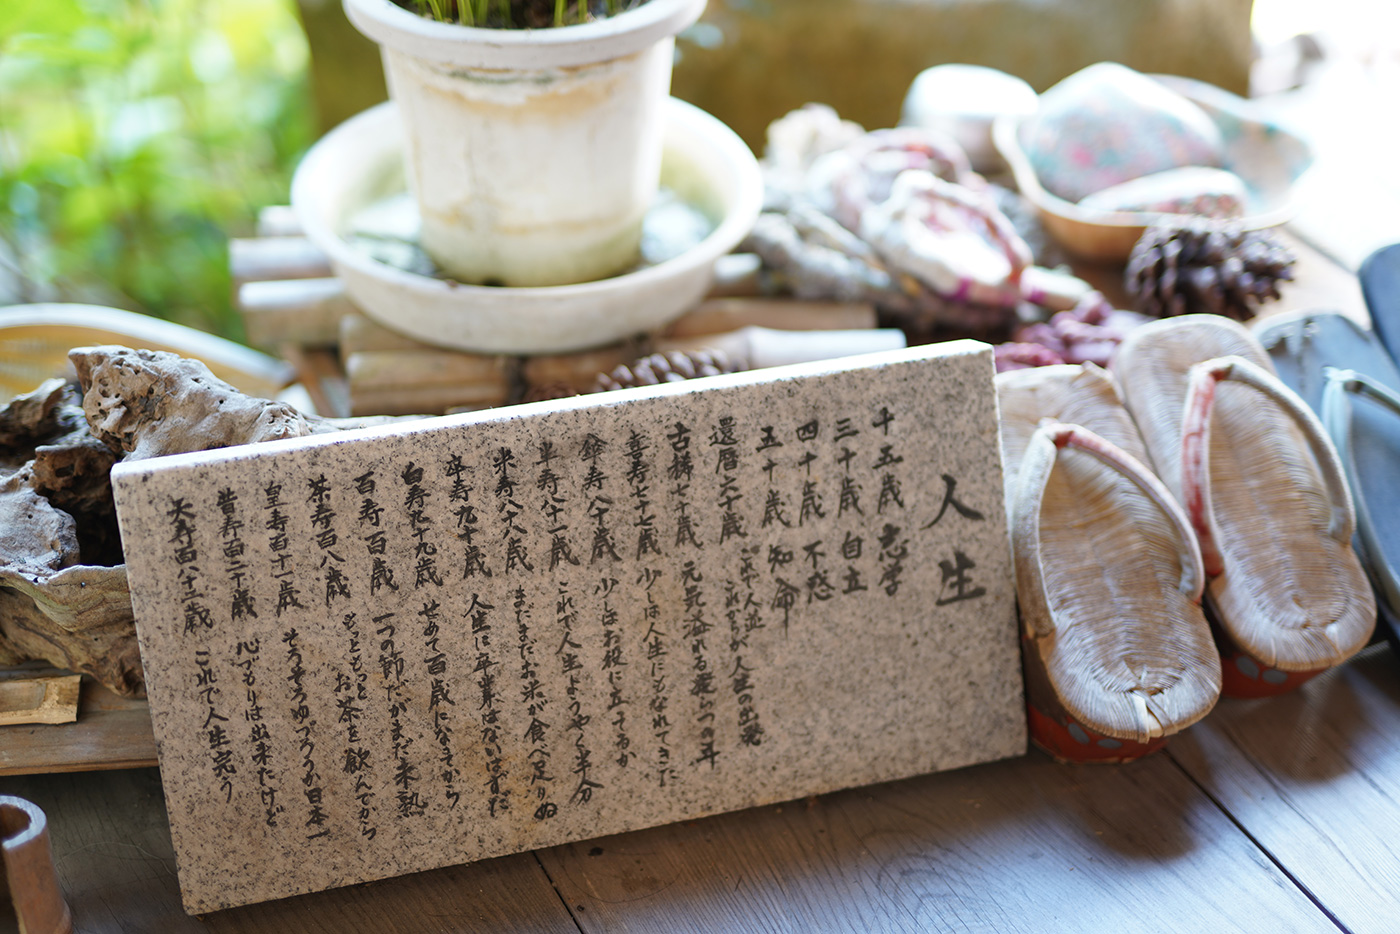 人生
十五歳 志学
三十歳 自立
四十歳 不惑
五十歳 知命
還暦六十歳
人並
これからが人生の出発
古稀七十歳 元気溢れる
喜寿七十七歳 少しは人生にもなれてきた
傘寿八十歳 少しはお役に立てるか
半寿八十一歳 これで人生ようやく半分
米寿八十八歳 まだまだお米が食べ足りぬ
卒寿九十歳 人生に卒業はないはずだ
白寿九十九歳 せめて百歳になってから
百寿百歳 一つの節だがまだ未熟
茶寿百八歳 もっともっと
お茶を飲んでから
皇寿百十一歳 そろそろゆづろうか日本一
昔寿百二十歳 心づもりは出来たけど
天寿百八十二歳 これで人生完う